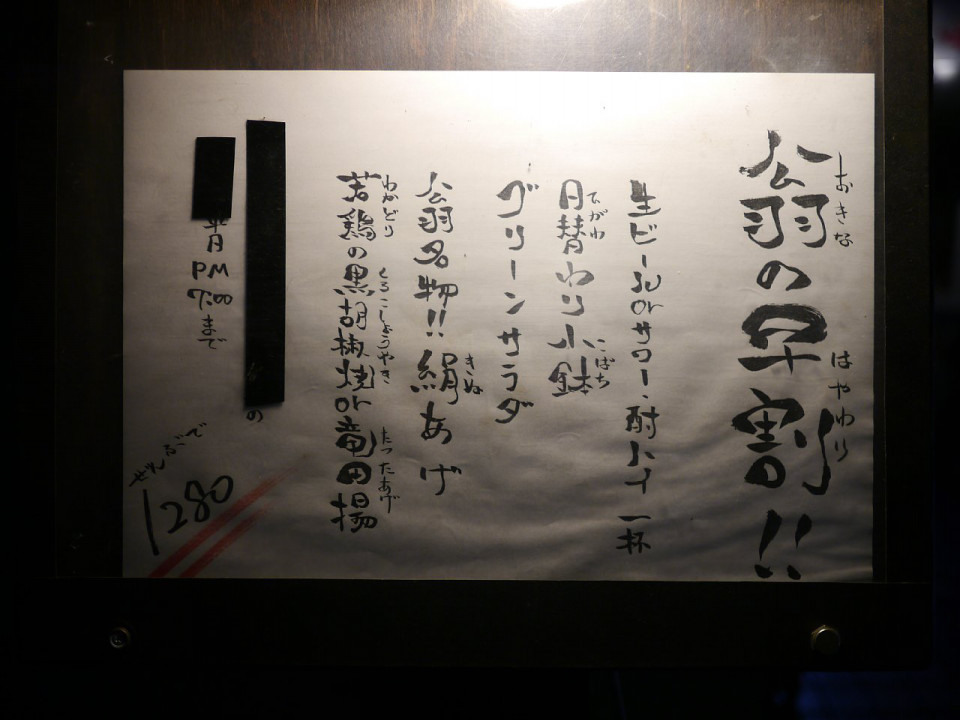 翁の早割!!
おきな
はやわり
生ビールorサワー・酎ハイ 一杯
日替わり小鉢
ひがわ
こばち
グリーンサラダ
翁名物!!絹あげ
きぬ
若鶏の黒胡椒焼or竜田揚
わかどり
くろこしょうやき
たつたあげ
の
PM
7:00
まで
ぜんぶで
1280